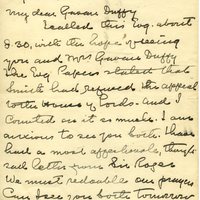 My dear Gavan Duffy
I called this Evg. about
8.30, with the hope of seeing
you and Mrs Gavan Duffy
The Evg Papers stated that
Smith had refused the appeal
to the House of Lords - and I
counted on it so much. I am
anxious to see you both. I have
had a most affectionate, though
sad letter from Sir Roger
We must redouble our prayers
Can I see you both tomorrow